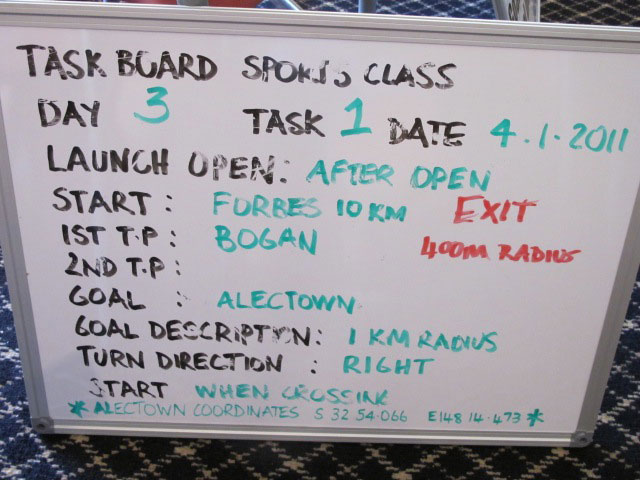 TASK BOARD SPORTS CLASS
DAY 3 TASK 1 DATE 4.1.2011
LAUNCH OPEN: AFTER OPEN
START : FORBES 10 KM EXIT
1ST T.P : BOGAN 400M RADIUS
2ND T.P :
GOAL : ALECTOWN
GOAL DESCRIPTION: 1 KM RADIUS
TURN DIRECTION : RIGHT
START WHEN CROSSING
* ALECTOWN COORDINATES S 32 54.066 E148 14.473 *